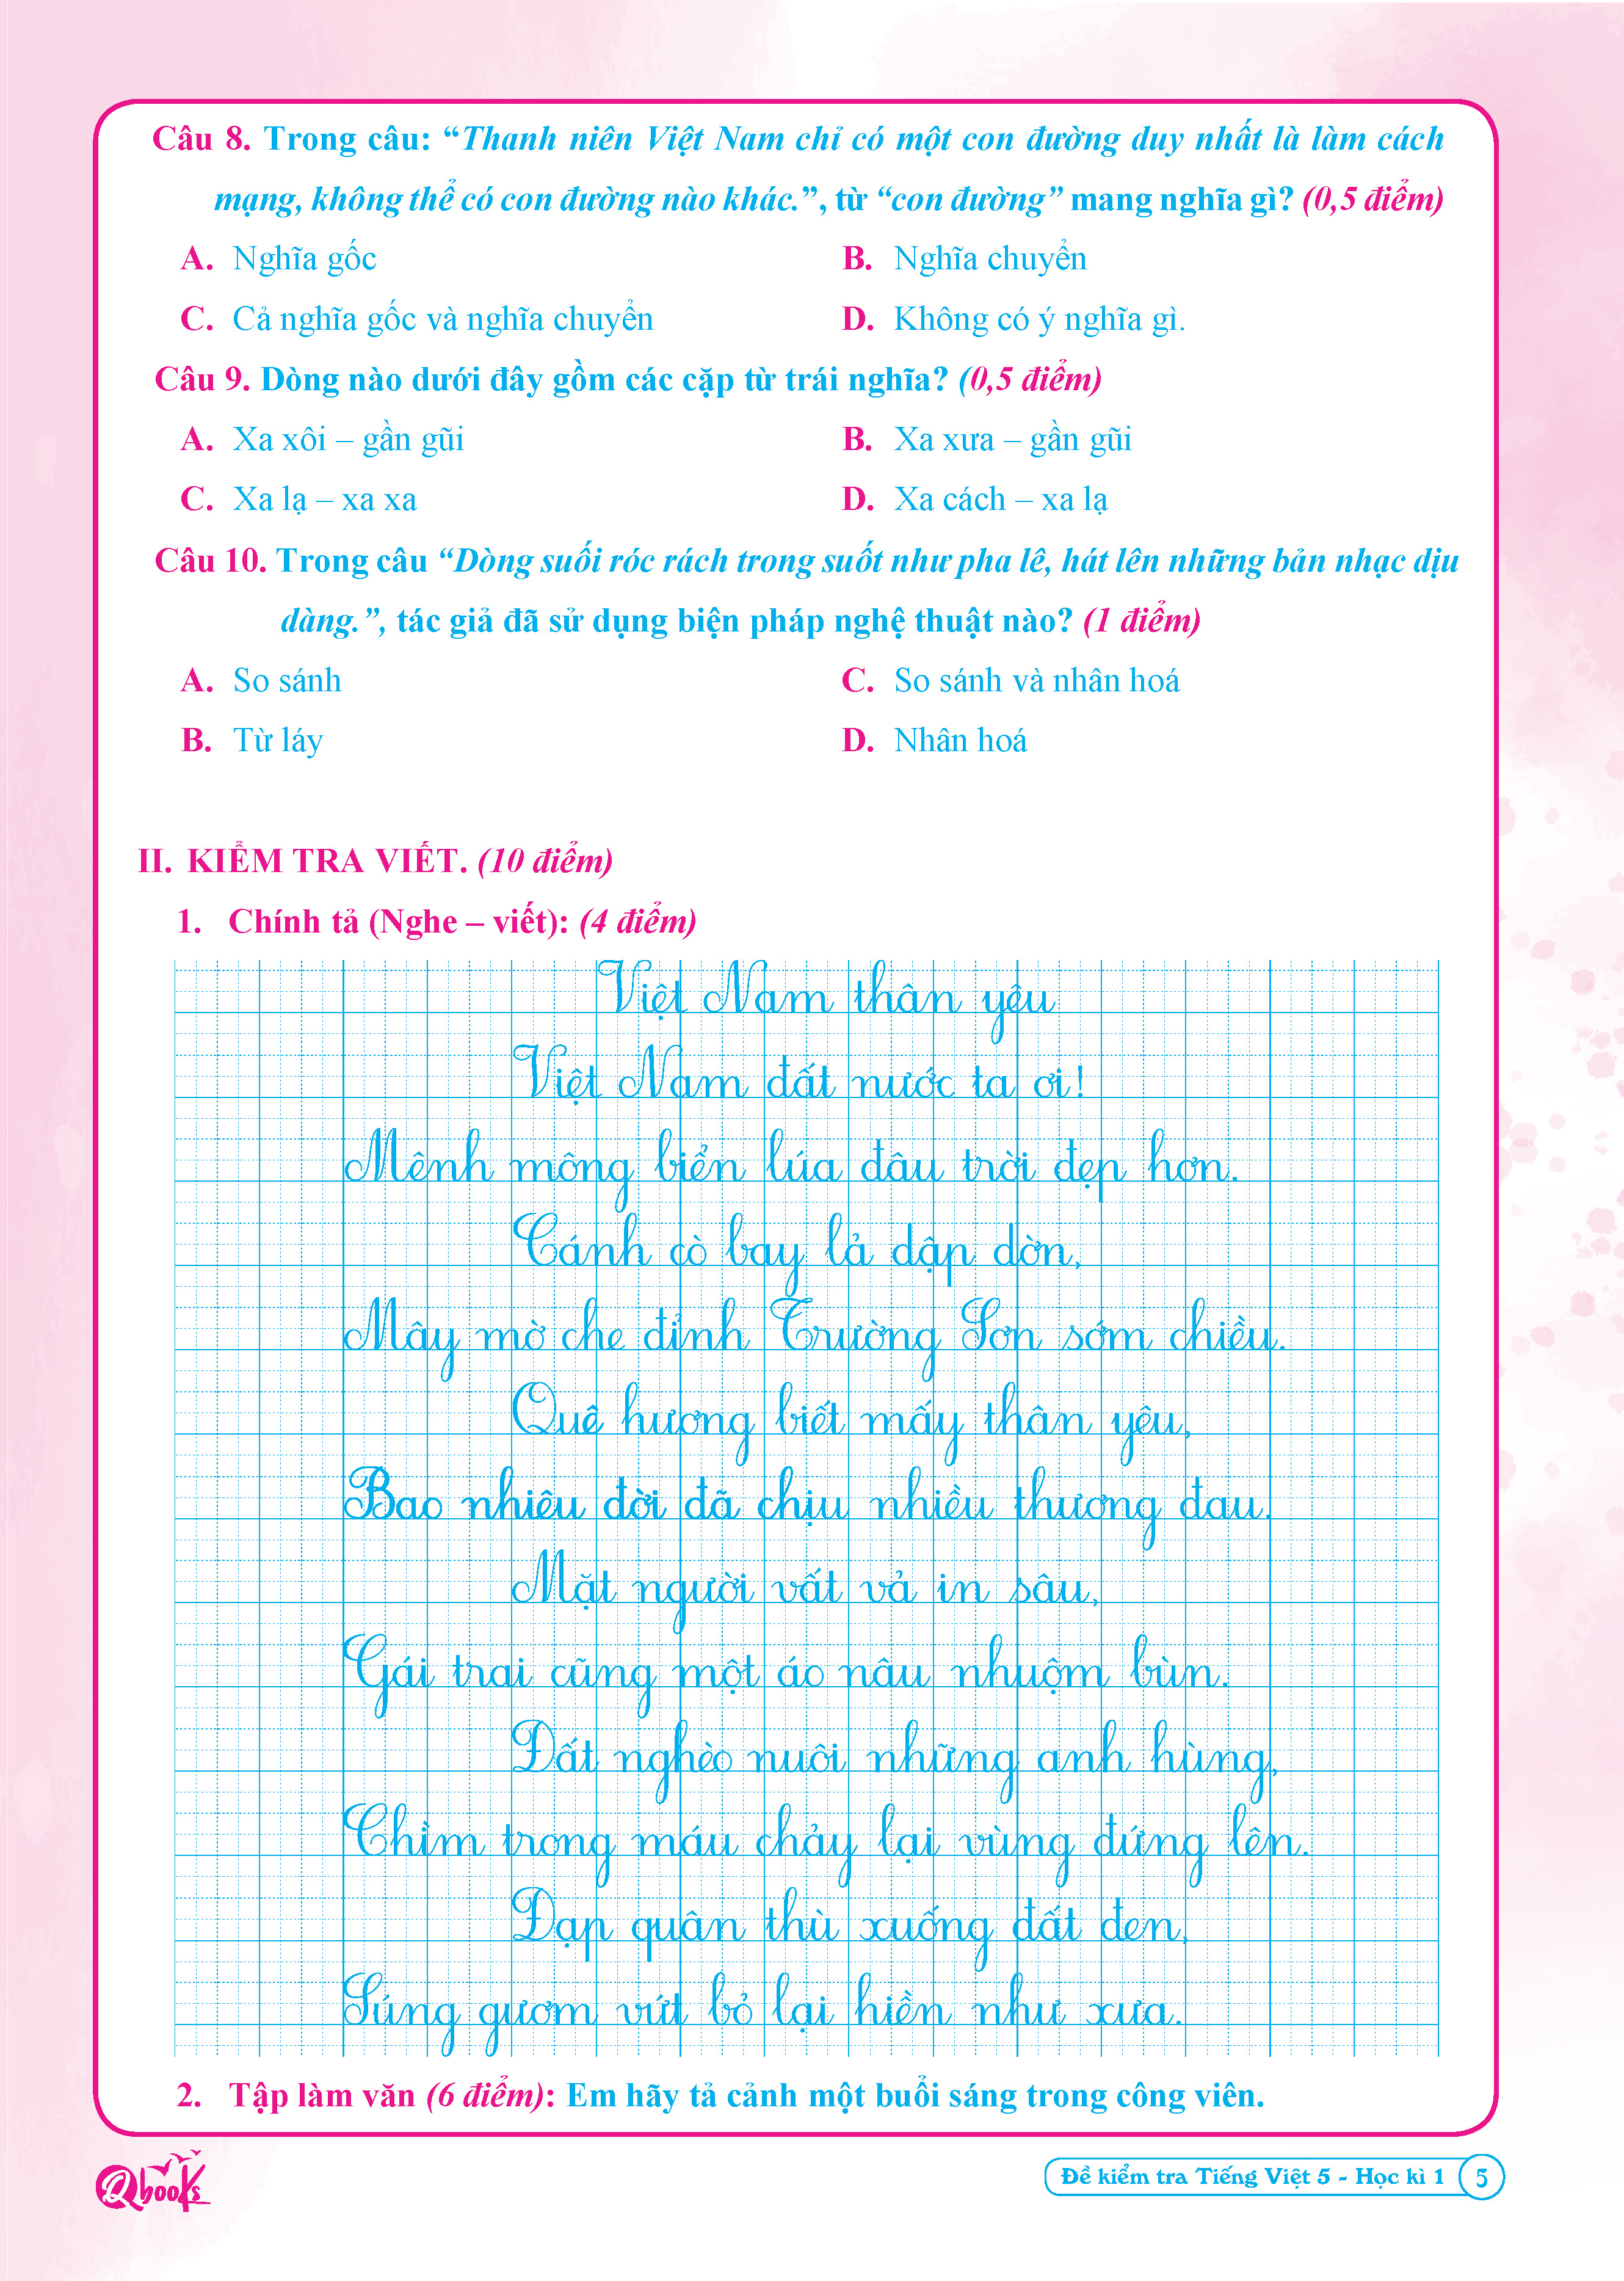 Câu 8. Trong câu: “Thanh niên Việt Nam chỉ có một con đường duy nhất là làm cách
mạng, không thể có con đường nào khác.”, từ “con đường” mang nghĩa gì? (0,5 điểm)
A. Nghĩa gốc B. Nghĩa chuyển
C. Cả nghĩa gốc và nghĩa chuyển D. Không có ý nghĩa gì.
Câu 9. Dòng nào dưới đây gồm các cặp từ trái nghĩa? (0,5 điểm)
A. Xa xôi – gần gũi B. Xa xưa – gần gũi
C. Xa lạ – xa xa D. Xa cách – xa lạ
Câu 10. Trong câu “Dòng suối róc rách trong suốt như pha lê, hát lên những bản nhạc dịu
dàng.”, tác giả đã sử dụng biện pháp nghệ thuật nào? (1 điểm)
A. So sánh C. So sánh và nhân hoá
B. Từ láy D. Nhân hoá
II. KIỂM TRA VIẾT. (10 điểm)
1. Chính tả (Nghe – viết): (4 điểm)
Việt Nam thân yêu
Việt Nam đất nước ta ơi!
Mênh mông biển lúa đâu trời đẹp hơn.
Cánh cò bay lả dập dờn,
Mây mờ che đỉnh Trường Sơn sớm chiều.
Quê hương biết mấy thân yêu,
Bao nhiêu đời đã chịu nhiều thương đau.
Mặt người vất vả in sâu,
Gái trai cũng một áo nâu nhuộm bùn.
Đất nghèo nuôi những anh hùng,
Chìm trong máu chảy lại vùng đứng lên.
Đạp quân thù xuống đất đen,
Súng gươm vứt bỏ lại hiền như xưa.
2. Tập làm văn (6 điểm): Em hãy tả cảnh một buổi sáng trong công viên.
Qbooks
Đề kiểm tra Tiếng Việt 5 - Học kì 1 5